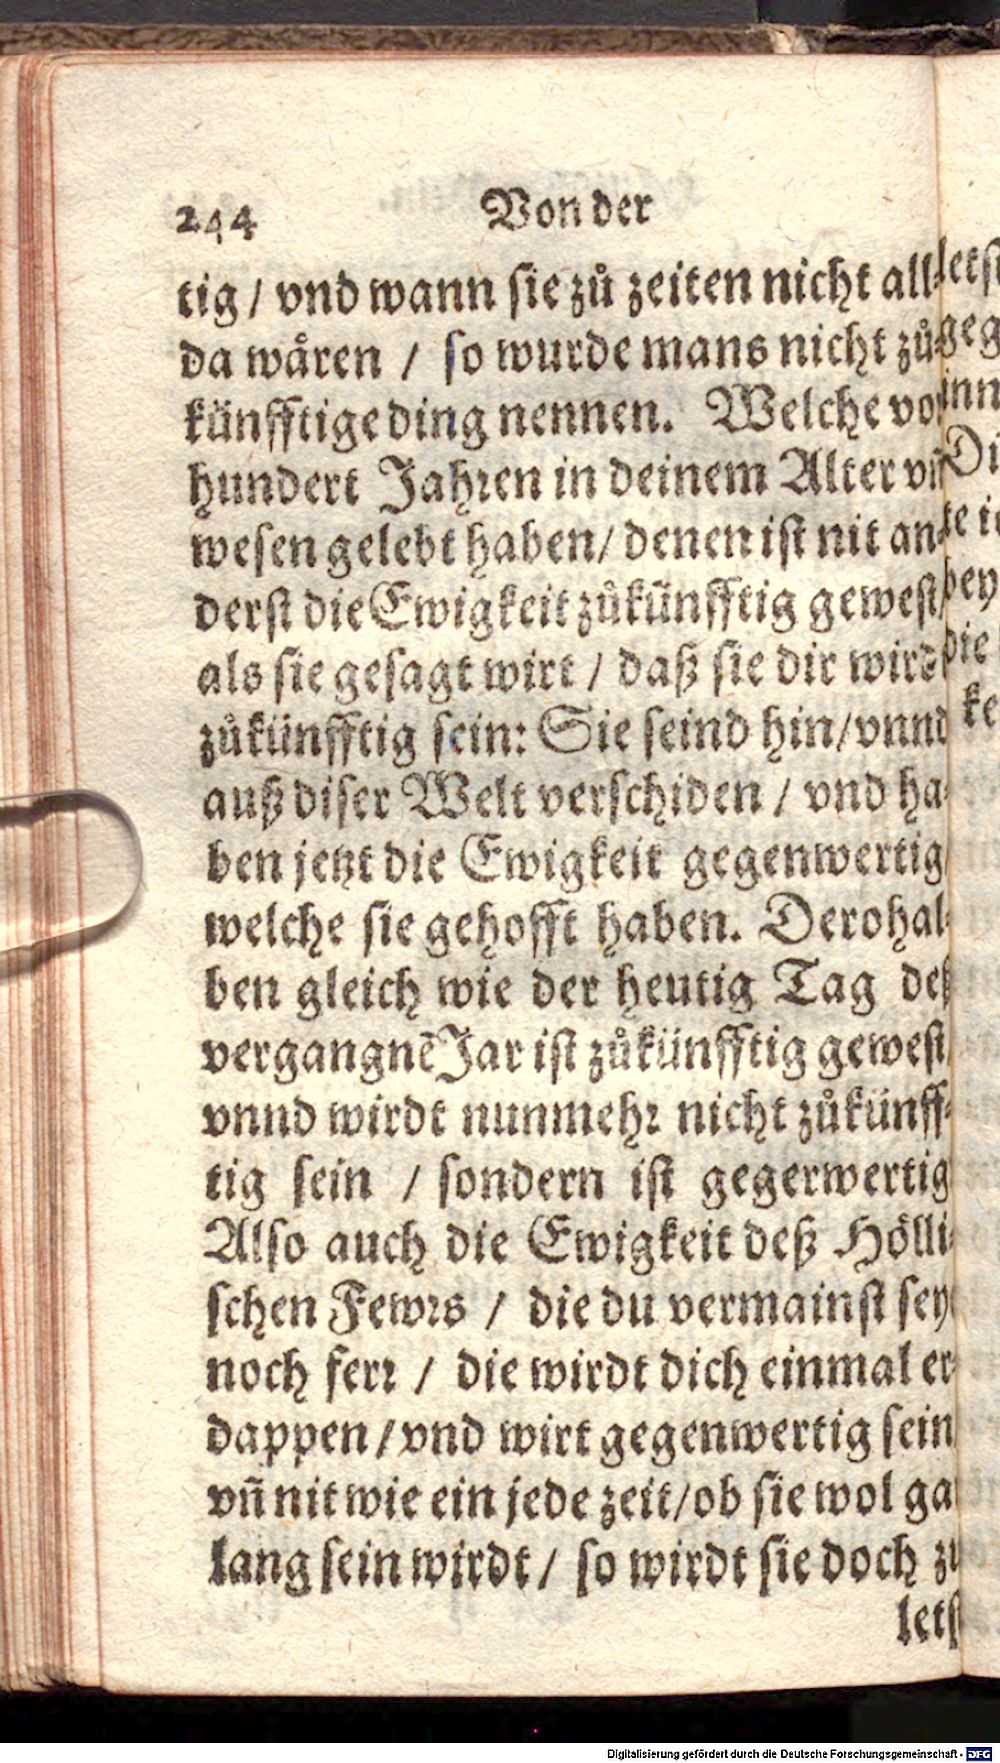 244 Von der
tig / vnd wann sie zů zeiten nicht all-
da wåren / so wurde mans nicht zů-
künfftige ding nennen. Welche vo
hundert Jahren in deinem Alter vñ
wesen gelebt haben / denen ist nit an-
derst die Ewigkeit zůkünfftig gewest /
als sie gesagt wirt / daß sie dir wirdt
zůkünfftig sein: Sie seind hin / vnnd
auß diser Welt verschiden / vnd ha-
ben jetzt die Ewigkeit gegenwertig
welche sie gehofft haben. Derohal-
ben gleich wie der heutig Tag deß
vergangnẽ Jar ist zůkünfftig gewest
vnnd wirdt nunmehr nicht zůkünff-
tig sein / sondern ist gegerwertig
Also auch die Ewigkeit deß Hölli-
schen Fewrs / die du vermainst sey
noch ferr / die wirdt dich einmal er-
dappen / vnd wirt gegenwertig sein
vñ nit wie ein jede zeit / ob sie wol ga
lang sein wirdt / so wirdt sie doch zu
letst
Digitalisierung gefördert durch die Deutsche Forschungsgemeinschaft - DFG